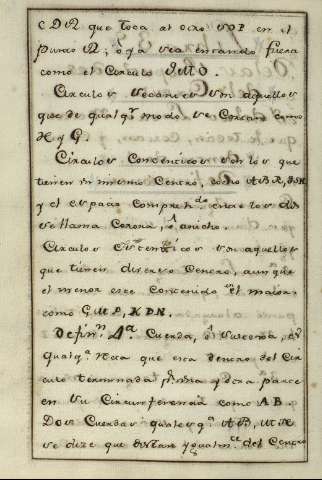 CDR que toca al otro VDP en el
punto R, ó ya sea estando fuera
como el Circulo
Circulos Secantes son aquellos
que de qualqr. modo se Cortan como
H y G.
Circulos Concentricos son los que
tienen un mismo Centro, como ABR,
y el espacio Comprehdo. entre los dos
se llama Corona, ó anillo.
Circulos son aquellos
que tienen diverso Centro, aunqe.
el menor este Contenido en el maior,
como
Definn. 4a. Cuerda, ó Subtensa, es
qualqa. Recta que esta dentro del Cir
culo terminada pr. una y otra parte
en su Circunferencia como AB.
Dos Cuerdas
se dize que distan ygualmte. del Centro